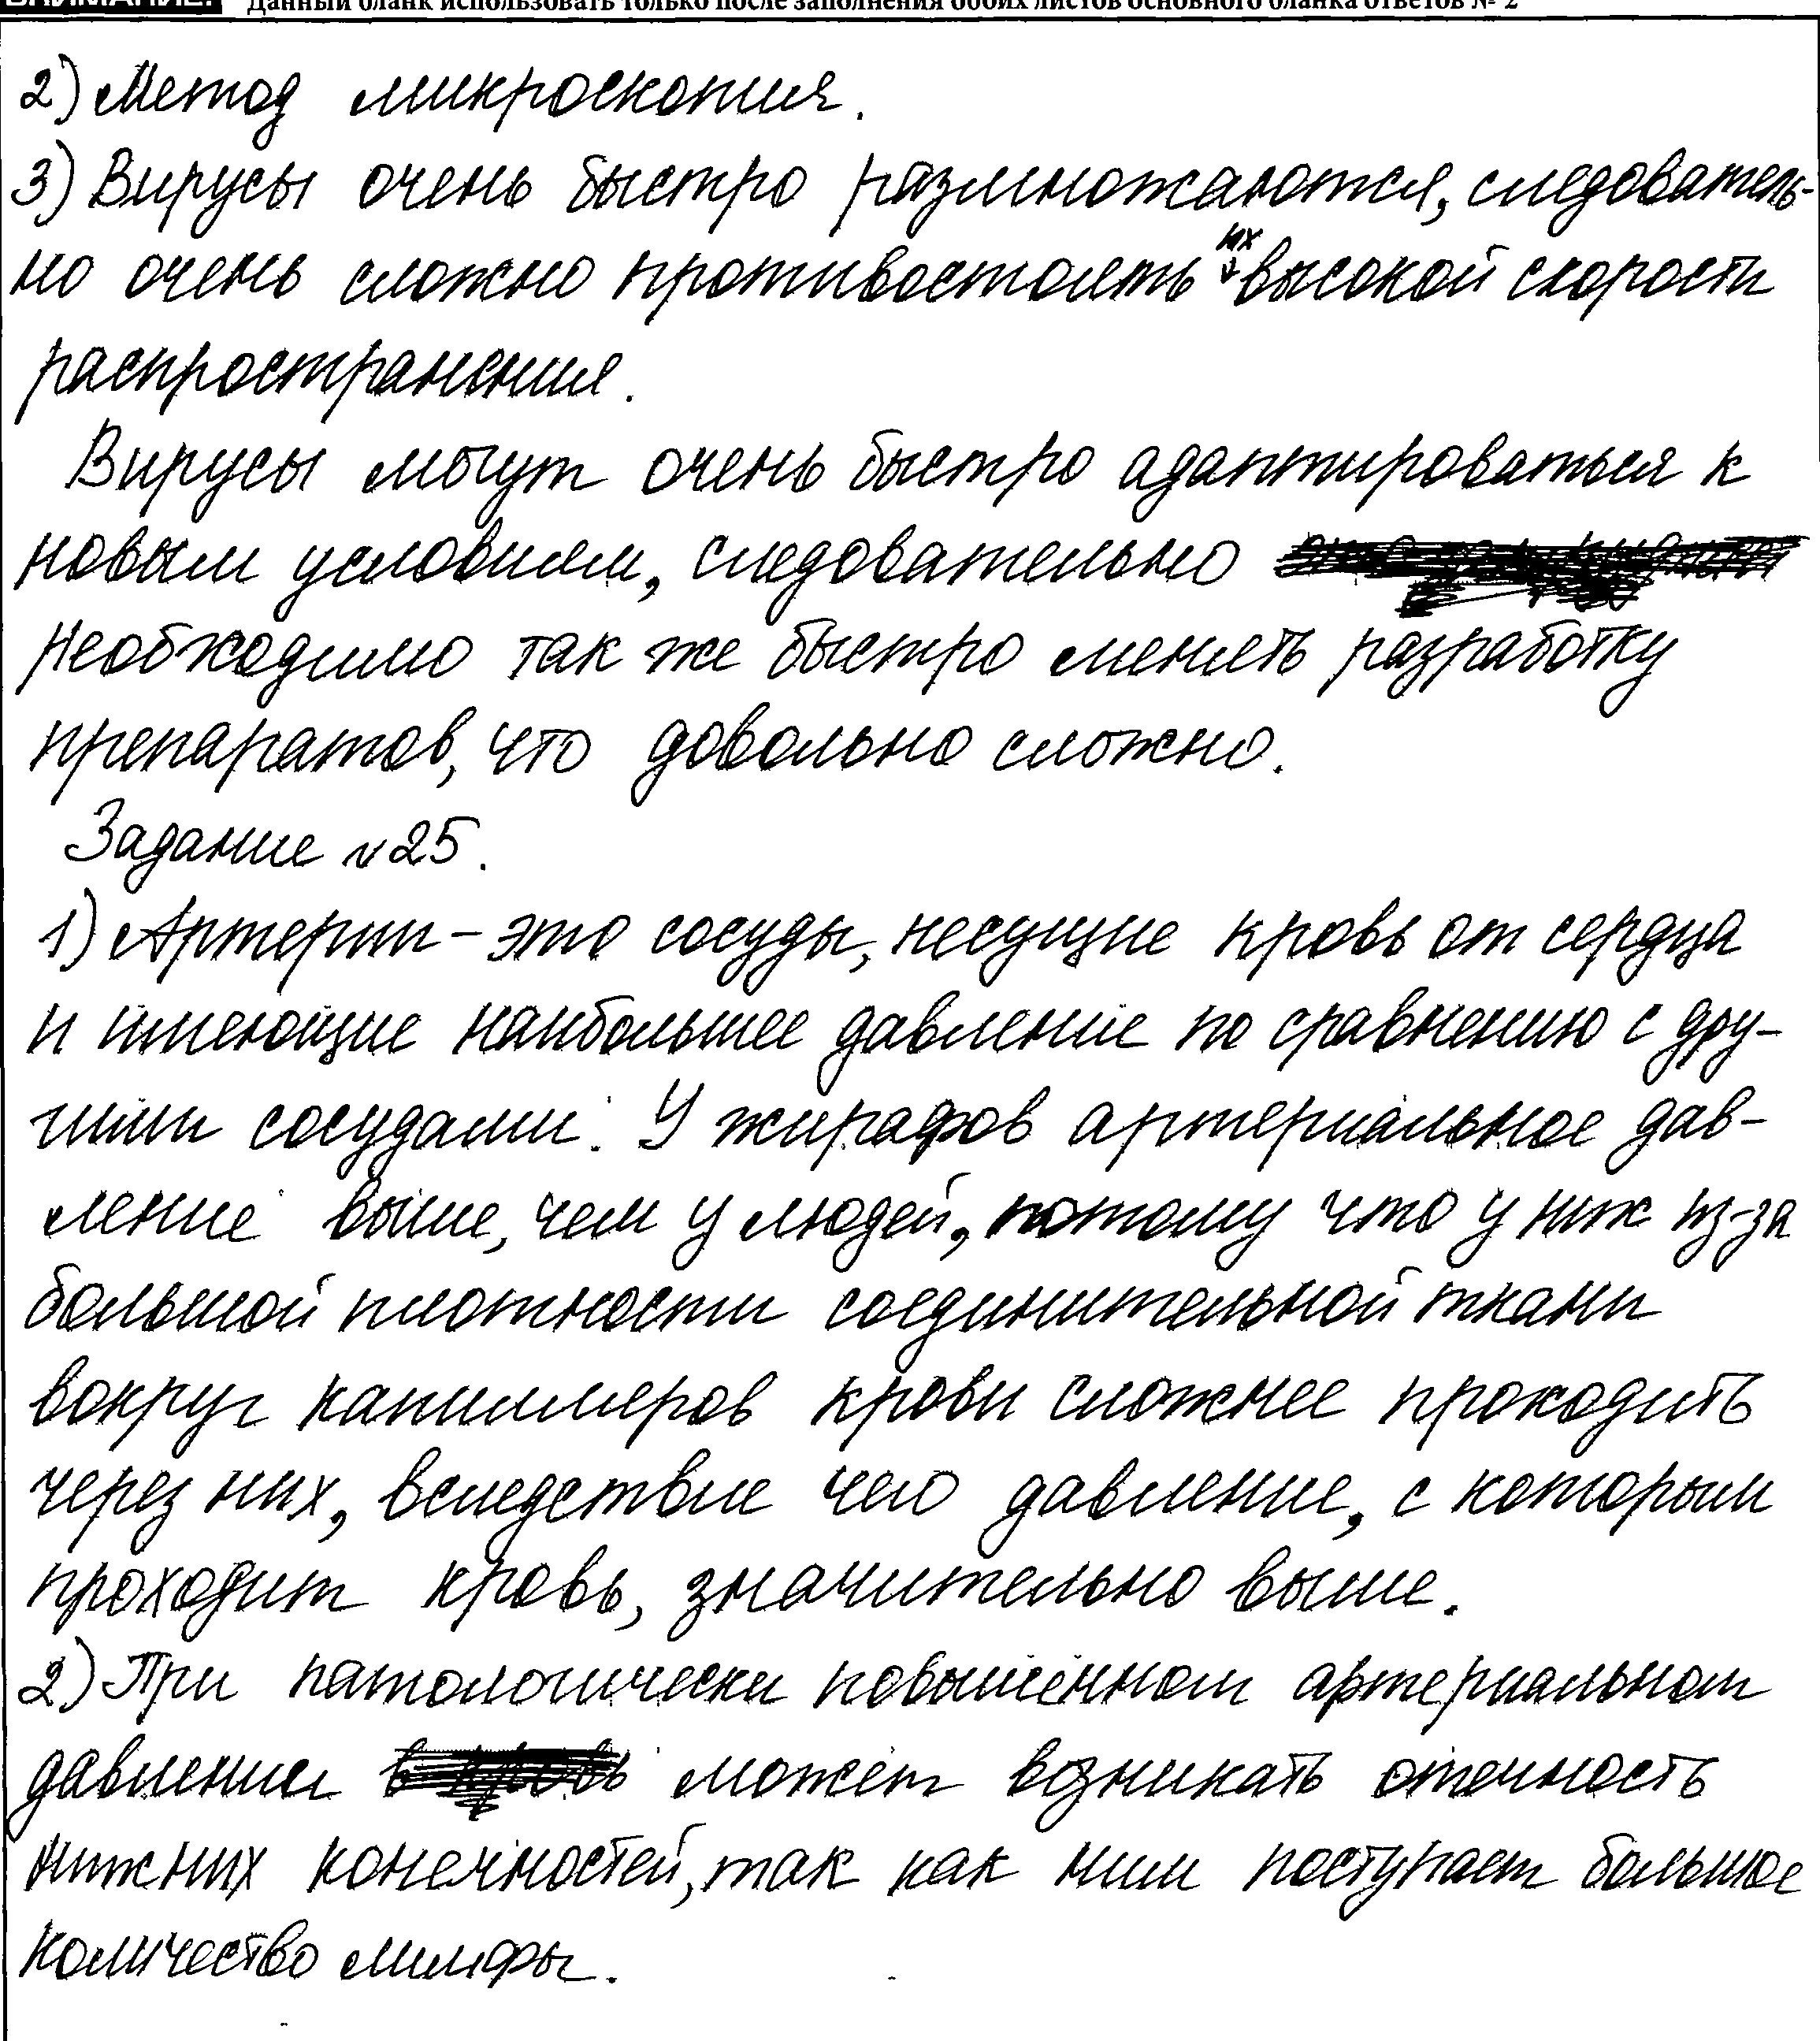 ВНИМАНИЕ! Данный бланк использовать только после заполнения обоих листов основного бланка ответов № 2
2) Метод микроскопия.
3) Вирусы очень быстро размножаются, следователь-
но очень сложно противостоять их высокой скорости
распространения.
Вирусы могут очень быстро адаптироваться к
новым условиям, следовательно
необходимо так же быстро менять разработку
препаратов, что довольно сложно.
Задание №25.
1) Артерии - это сосуды, несущие кровь от сердца
и имеющие наибольшее давление по сравнению с дру-
гими сосудами. У жирафов артериальное дав-
ление выше, чем у людей, потому что у них из-за
большой плотности соединительной ткани
вокруг капилляров крови сложнее проходить
через них, вследствие чего давление, с которым
проходит кровь, значительно выше.
2) При патологически повышенном артериальном
давлении может возникать отечность
нижних конечностей, так как ним поступает большое
количество лимфы.